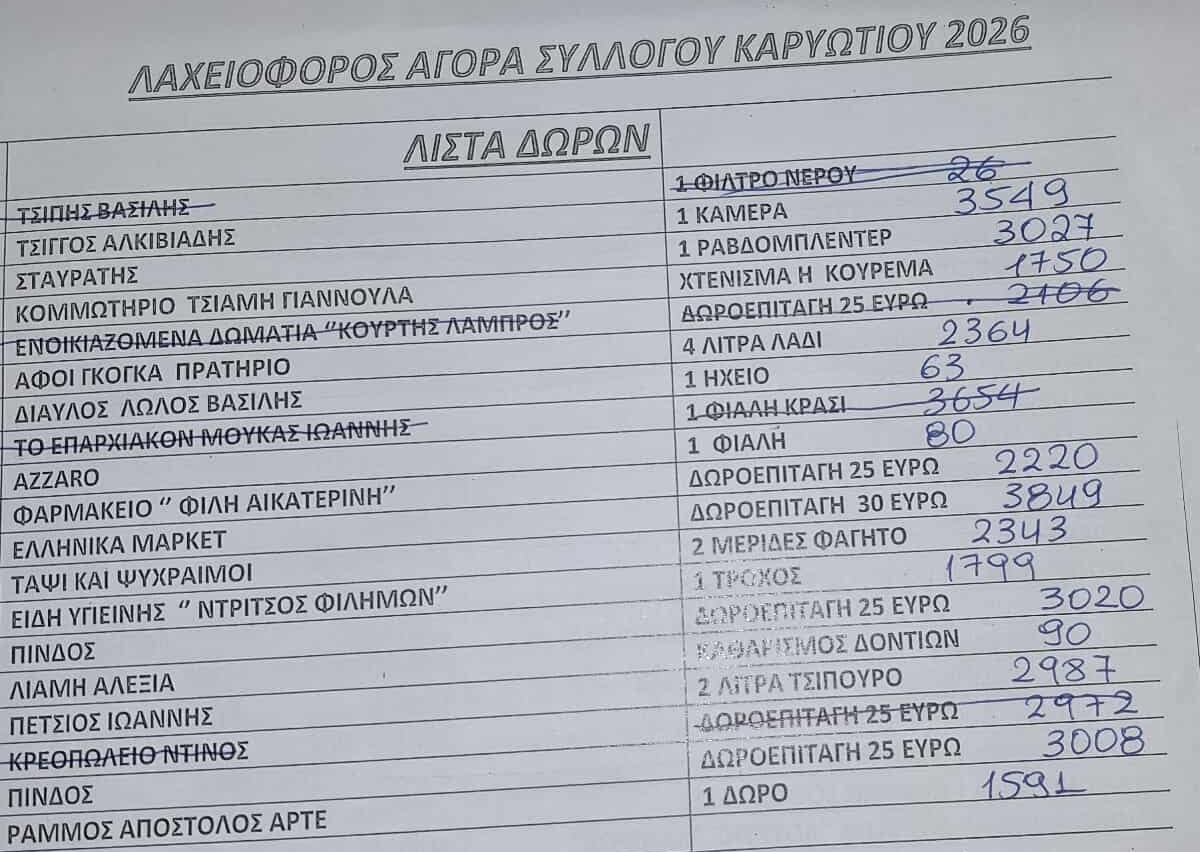 ΛΑΧΕΙΟΦΟΡΟΣ ΑΓΟΡΑ ΣΥΛΛΟΓΟΥ ΚΑΡΥΩΤΙΟΥ 2026
ΛΙΣΤΑ ΔΩΡΩΝ
ΤΣΙΠΗΣ ΒΑΣΙΛΗΣ 1 ΦΙΛΤΡΟ ΝΕΡΟΥ 26
ΤΣΙΓΓΟΣ ΑΛΚΙΒΙΑΔΗΣ 1 ΚΑΜΕΡΑ 3549
ΣΤΑΥΡΑΤΗΣ 1 ΡΑΒΔΟΜΠΛΕΝΤΕΡ 3027
ΚΟΜΜΩΤΗΡΙΟ ΤΣΙΑΜΗ ΓΙΑΝΝΟΥΛΑ ΧΤΕΝΙΣΜΑ Η ΚΟΥΡΕΜΑ 1750
ΕΝΟΙΚΙΑΖΟΜΕΝΑ ΔΩΜΑΤΙΑ “ΚΟΥΡΤΗΣ ΛΑΜΠΡΟΣ” ΔΩΡΟΕΠΙΤΑΓΗ 25 ΕΥΡΩ 2106
ΑΦΟΙ ΓΚΟΓΚΑ ΠΡΑΤΗΡΙΟ 4 ΛΙΤΡΑ ΛΑΔΙ 2364
ΔΙΑΥΛΟΣ ΛΩΛΟΣ ΒΑΣΙΛΗΣ 1 ΗΧΕΙΟ 63
ΤΟ ΕΠΑΡΧΙΑΚΟΝ ΜΟΥΚΑΣ ΙΩΑΝΝΗΣ 1 ΦΙΑΛΗ ΚΡΑΣΙ 3654
AZZARO 1 ΦΙΑΛΗ 80
ΦΑΡΜΑΚΕΙΟ “ ΦΙΛΗ ΑΙΚΑΤΕΡΙΝΗ” ΔΩΡΟΕΠΙΤΑΓΗ 25 ΕΥΡΩ 2220
ΕΛΛΗΝΙΚΑ ΜΑΡΚΕΤ ΔΩΡΟΕΠΙΤΑΓΗ 30 ΕΥΡΩ 3849
ΤΑΨΙ ΚΑΙ ΨΥΧΡΑΙΜΟΙ 2 ΜΕΡΙΔΕΣ ΦΑΓΗΤΟ 2343
ΕΙΔΗ ΥΓΙΕΙΝΗΣ “ ΝΤΡΙΤΣΟΣ ΦΙΛΗΜΩΝ” 1 ΤΡΟΧΟΣ 1799
ΠΙΝΔΟΣ ΔΩΡΟΕΠΙΤΑΓΗ 25 ΕΥΡΩ 3020
ΛΙΑΜΗ ΑΛΕΞΙΑ ΚΑΘΑΡΙΣΜΟΣ ΔΟΝΤΙΩΝ 90
ΠΕΤΣΙΟΣ ΙΩΑΝΝΗΣ 2 ΛΙΤΡΑ ΤΣΙΠΟΥΡΟ 2987
ΚΡΕΟΠΩΛΕΙΟ ΝΤΙΝΟΣ ΔΩΡΟΕΠΙΤΑΓΗ 25 ΕΥΡΩ 2972
ΠΙΝΔΟΣ ΔΩΡΟΕΠΙΤΑΓΗ 25 ΕΥΡΩ 3008
ΡΑΜΜΟΣ ΑΠΟΣΤΟΛΟΣ ΑΡΤΕ 1 ΔΩΡΟ 1591